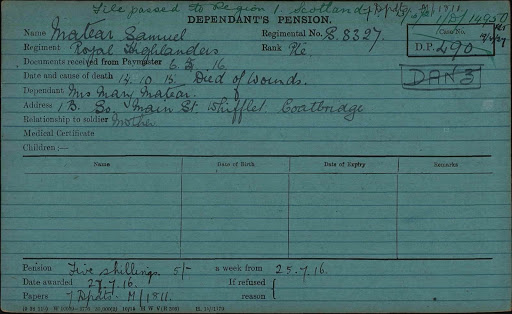 File passed to Region 1. Scotland
1/D/14950
DEPENDANT'S PENSION.
Name Matear Samuel Regimental No. S. 8327.
Case No.
Regiment Royal Highlanders Rank Pte.
D.P. 290
Documents received from Paymaster 6.5.16
DAN3
Date and cause of death 14.10.15. Died of wounds.
Dependant Mrs Mary Matear.
Address 1 B. So. Main St. Whifflet Coatbridge
Relationship to soldier Mother
Medical Certificate
Children :—
Name Date of Birth Date of Expiry Remarks
Pension Five shillings 5/- a week from 25.7.16.
Date awarded 27.7.16. If refused
Papers M/1811. reason